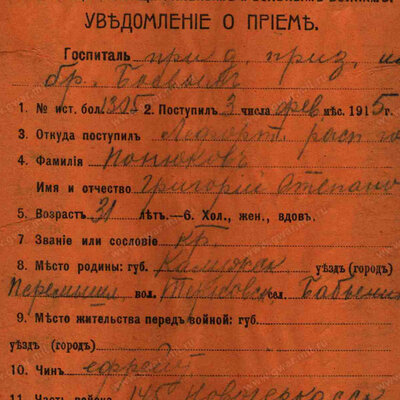 УВѢДОМЛЕНІЕ О ПРІЕМѢ.
Госпиталь при д. приз.
бр. Боевых
1. № ист. бол. 1305 – 2. Поступил 3 числа фев мѣс. 1915 г.
3. Откуда поступил Лефорт. расп
4. Фамилія Понюковъ
Имя и отчество Григорій Степано
5. Возрастъ 31 лѣтъ.—6. Хол., жен., вдов.
7. Званіе или сословіе кр.
8. Мѣсто родины: губ. Калужск уѣздъ (город)
Перемышл вол. сел.
9. Мѣсто жительства передъ войной: губ.
уѣздъ (город)
10. Чинъ ефрейт
11. Часть войска 145 Новочеркасск